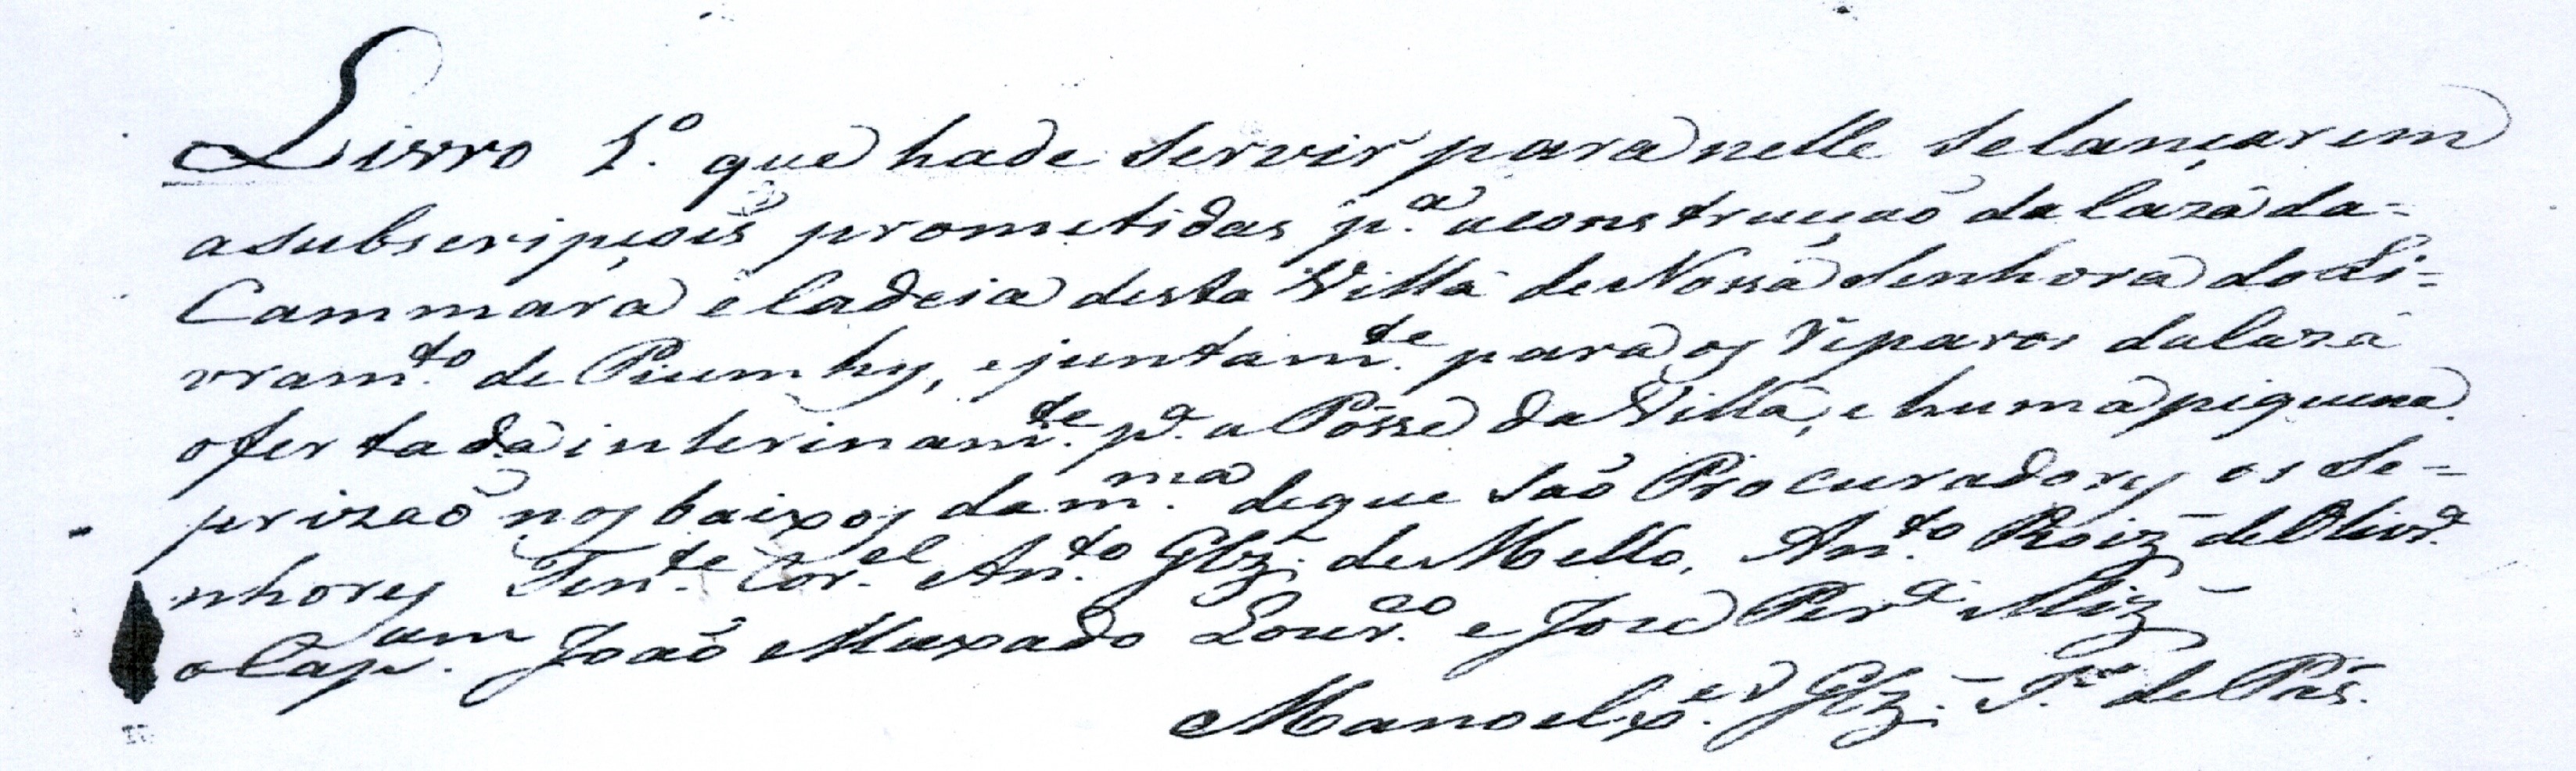 Livro 1.º que hade servir para nelle selançarem
asubscripçoiš prometidas p.ª aconstrucçaõ da Caza da=
Cammara e Cadeia desta Villa de Nossa Senhora do Li=
vram.to de Piumhy, ejuntam.te para os reparos da Caza
ofertada interinam.te p.ª a Pósse da Villa, e huma piquena
prizaõ nos baixos da m.ma deque saõ Procuradores os Se=
nhores Ten.te Cor.el An.to Glz. de Mello, An.to Roiz de Olivr.ª
o Cap.am Joaõ Maxado Lour.ço e Joze Per.ª Miz
Manoel x.er Glz.